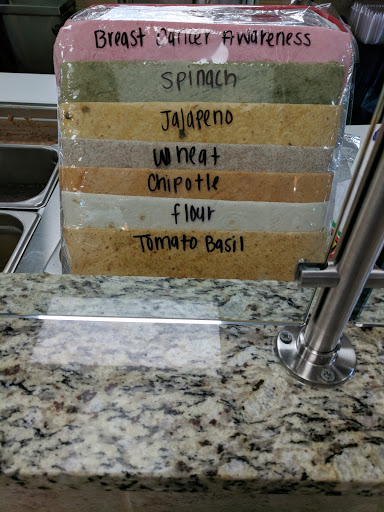 Breast Cancer Awareness
Spinach
Jalapeno
Wheat
Chipotle
flour
Tomato Basil